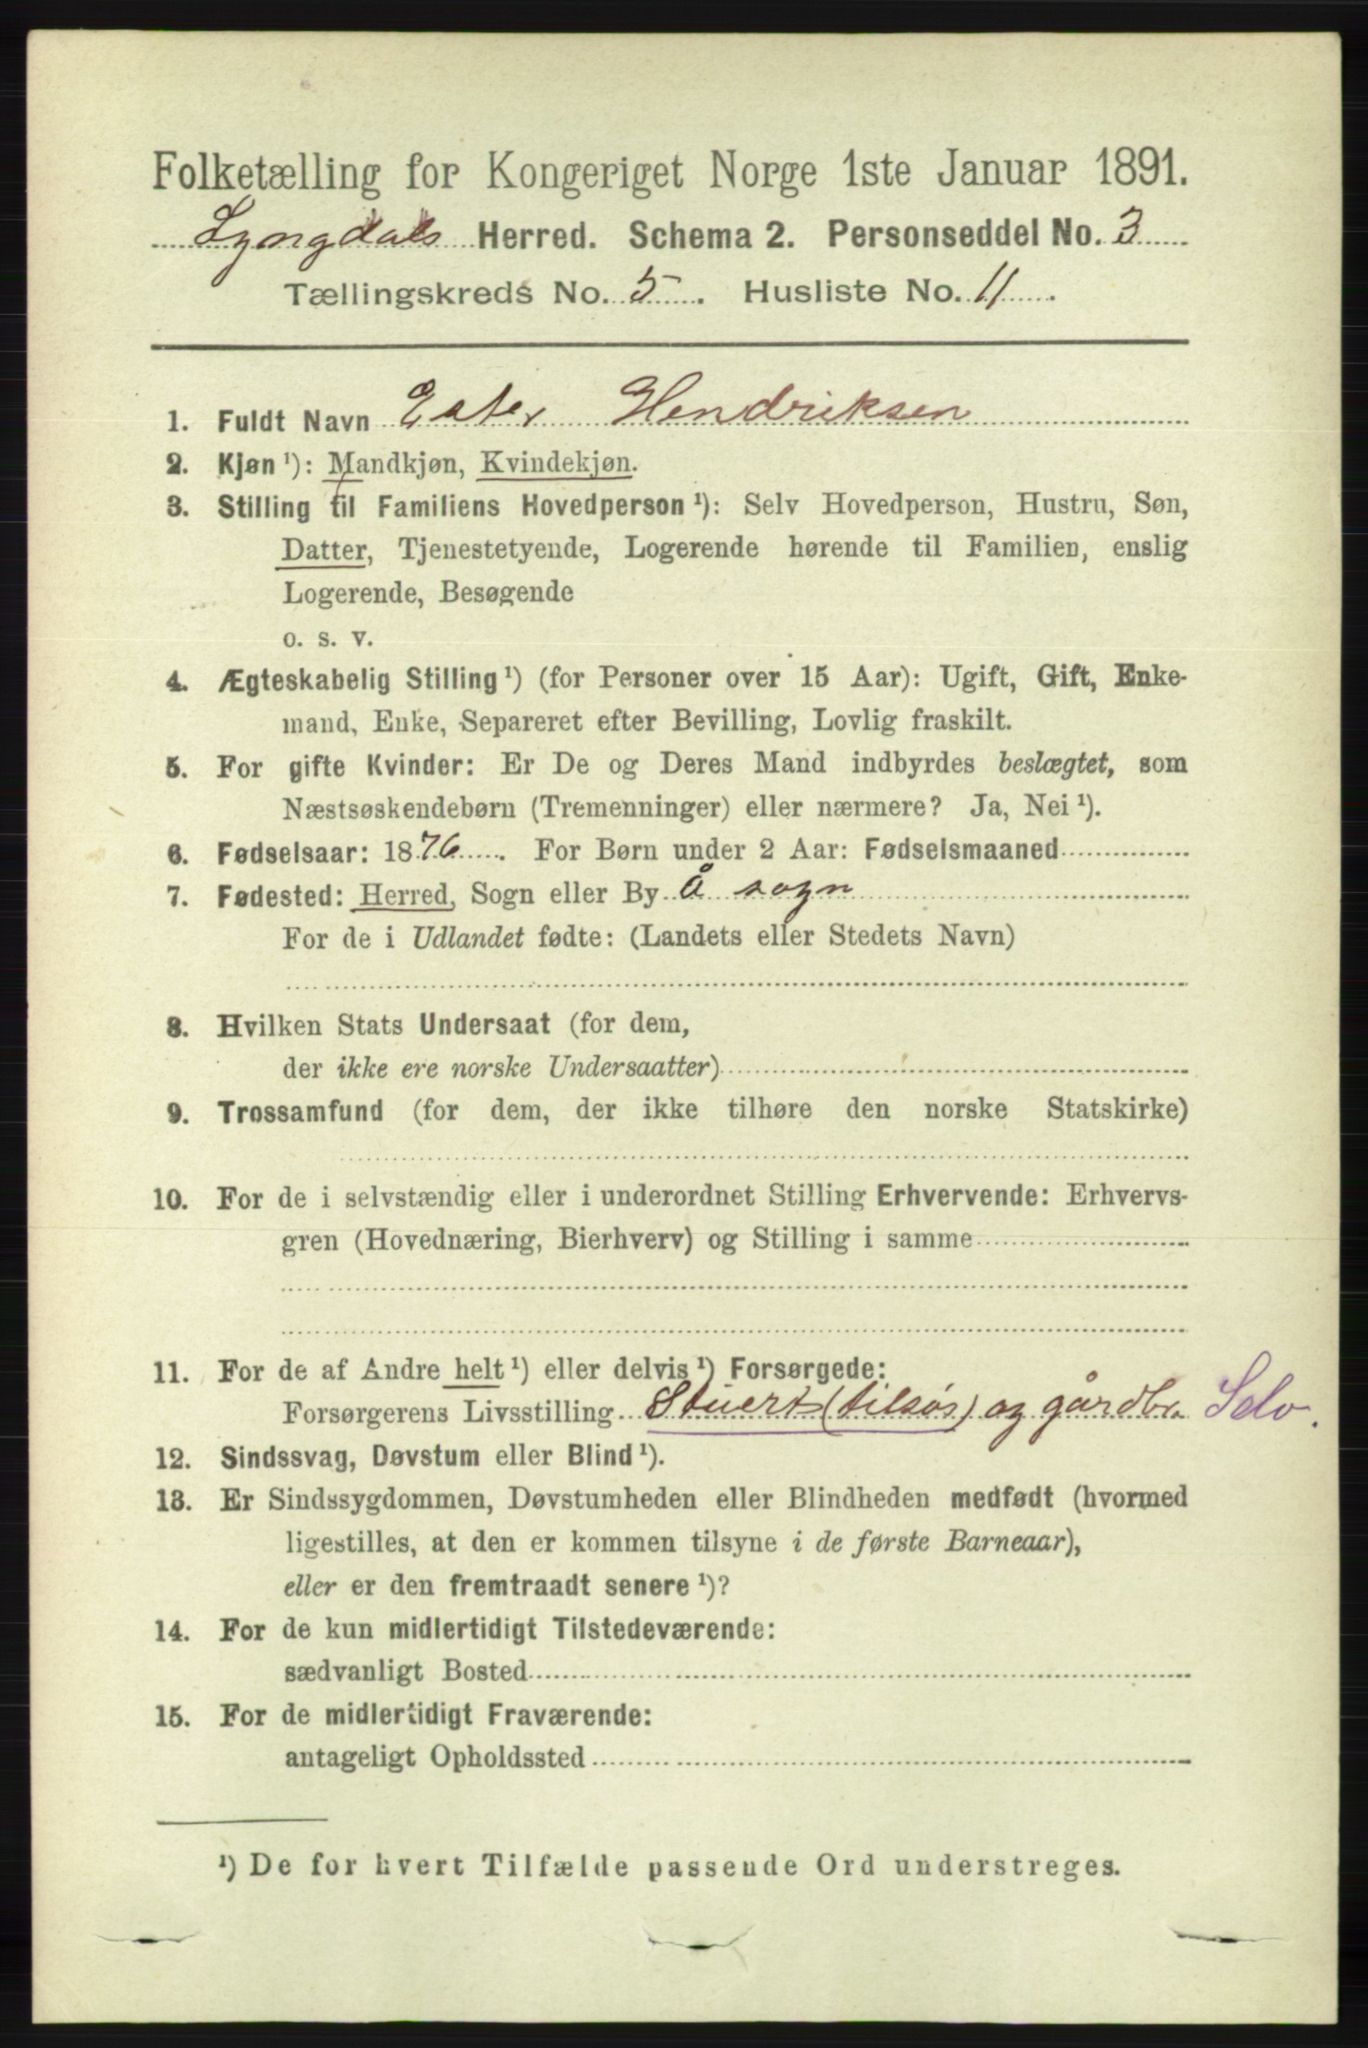 Folketælling for Kongeriget Norge 1ste Januar 1891.
Lyngdals Herred. Schema 2. Personseddel No. 3
Tællingskreds No. 5. Husliste No. 11.
1. Fuldt Navn Ester Hendriksen
2. Kjøn ¹): Mandkjøn, Kvindekjøn.
3. Stilling til Familiens Hovedperson ¹): Selv Hovedperson, Hustru, Søn,
Datter, Tjenestetyende, Logerende hørende til Familien, enslig
Logerende, Besøgende
o. s. v.
4. Ægteskabelig Stilling ¹) (for Personer over 15 Aar): Ugift, Gift, Enke-
mand, Enke, Separeret efter Bevilling, Lovlig fraskilt.
5. For gifte Kvinder: Er De og Deres Mand indbyrdes beslægtet, som
Næstsøskendebørn (Tremenninger) eller nærmere? Ja, Nei ¹).
6. Fødselsaar: 1876. For Børn under 2 Aar: Fødselsmaaned
7. Fødested: Herred, Sogn eller By Å sogn
For de i Udlandet fødte: (Landets eller Stedets Navn)
8. Hvilken Stats Undersaat (for dem,
der ikke ere norske Undersaatter)
9. Trossamfund (for dem, der ikke tilhøre den norske Statskirke)
10. For de i selvstændig eller i underordnet Stilling Erhvervende: Erhvervs-
gren (Hovednæring, Bierhverv) og Stilling i samme
11. For de af Andre helt ¹) eller delvis ¹) Forsørgede:
Forsørgerens Livsstilling Stuert (tilsøs) og gårdbr. Selv.
12. Sindssvag, Døvstum eller Blind ¹).
13. Er Sindssygdommen, Døvstumheden eller Blindheden medfødt (hvormed
ligestilles, at den er kommen tilsyne i de første Barneaar),
eller er den fremtraadt senere ¹)?
14. For de kun midlertidigt Tilstedeværende:
sædvanligt Bosted
15. For de midlertidigt Fraværende:
antageligt Opholdssted
¹) De for hvert Tilfælde passende Ord understreges.